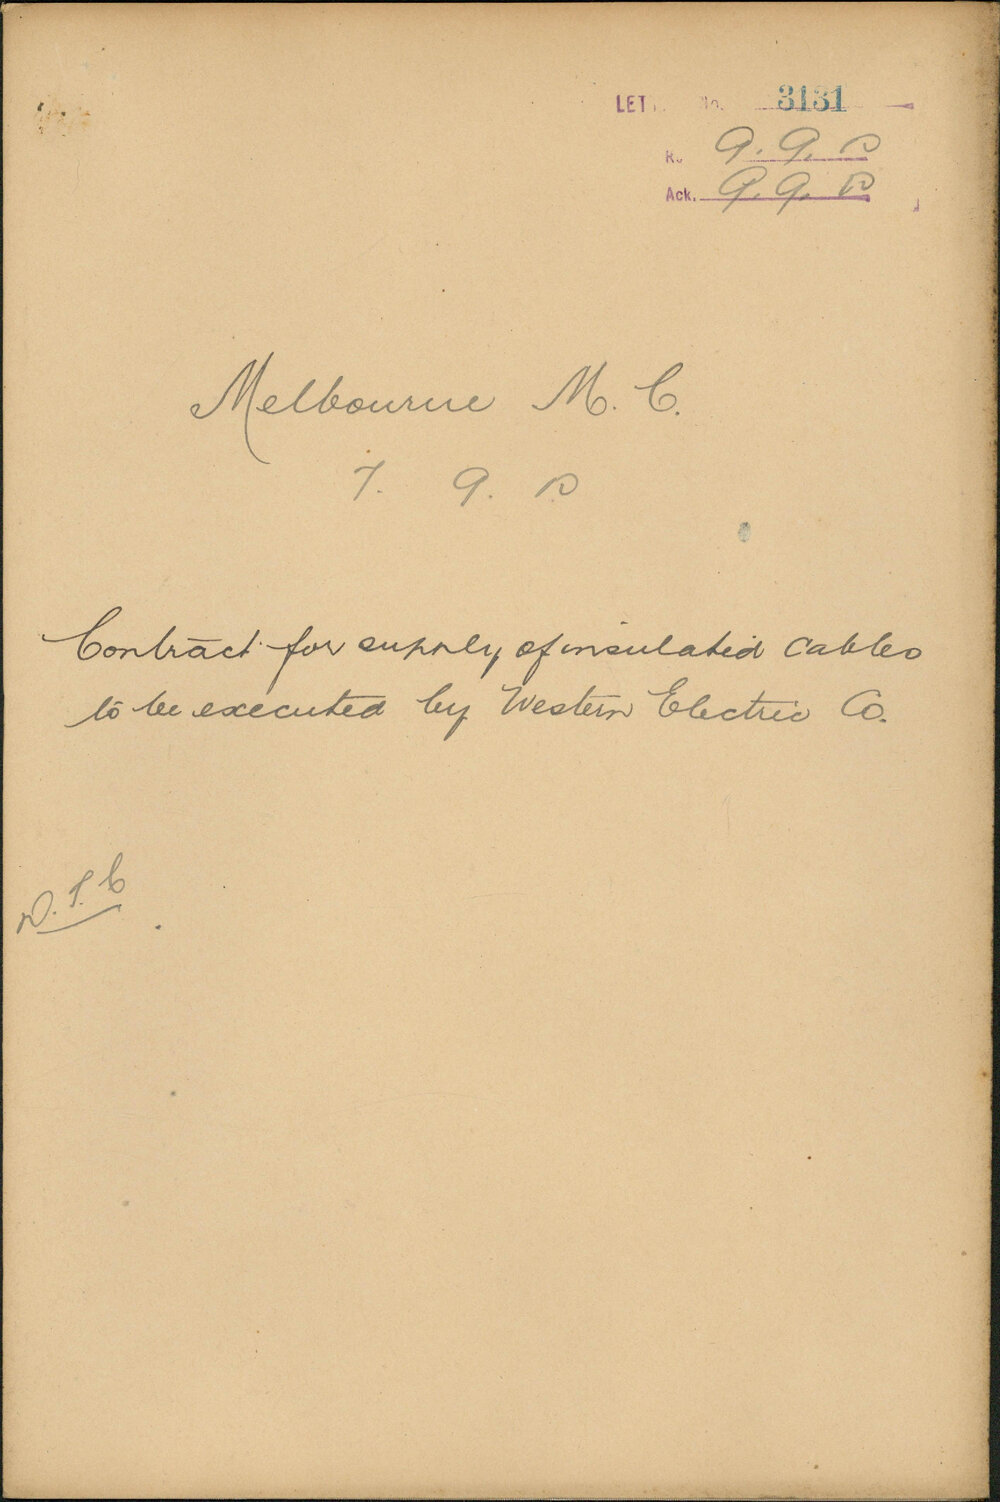 LET No. 3131
9. 9.
Ack. 9. 9.
Melbourne M. C.
7. 9.
Contract for supply of insulated cables
to be executed by Western Electric Co.